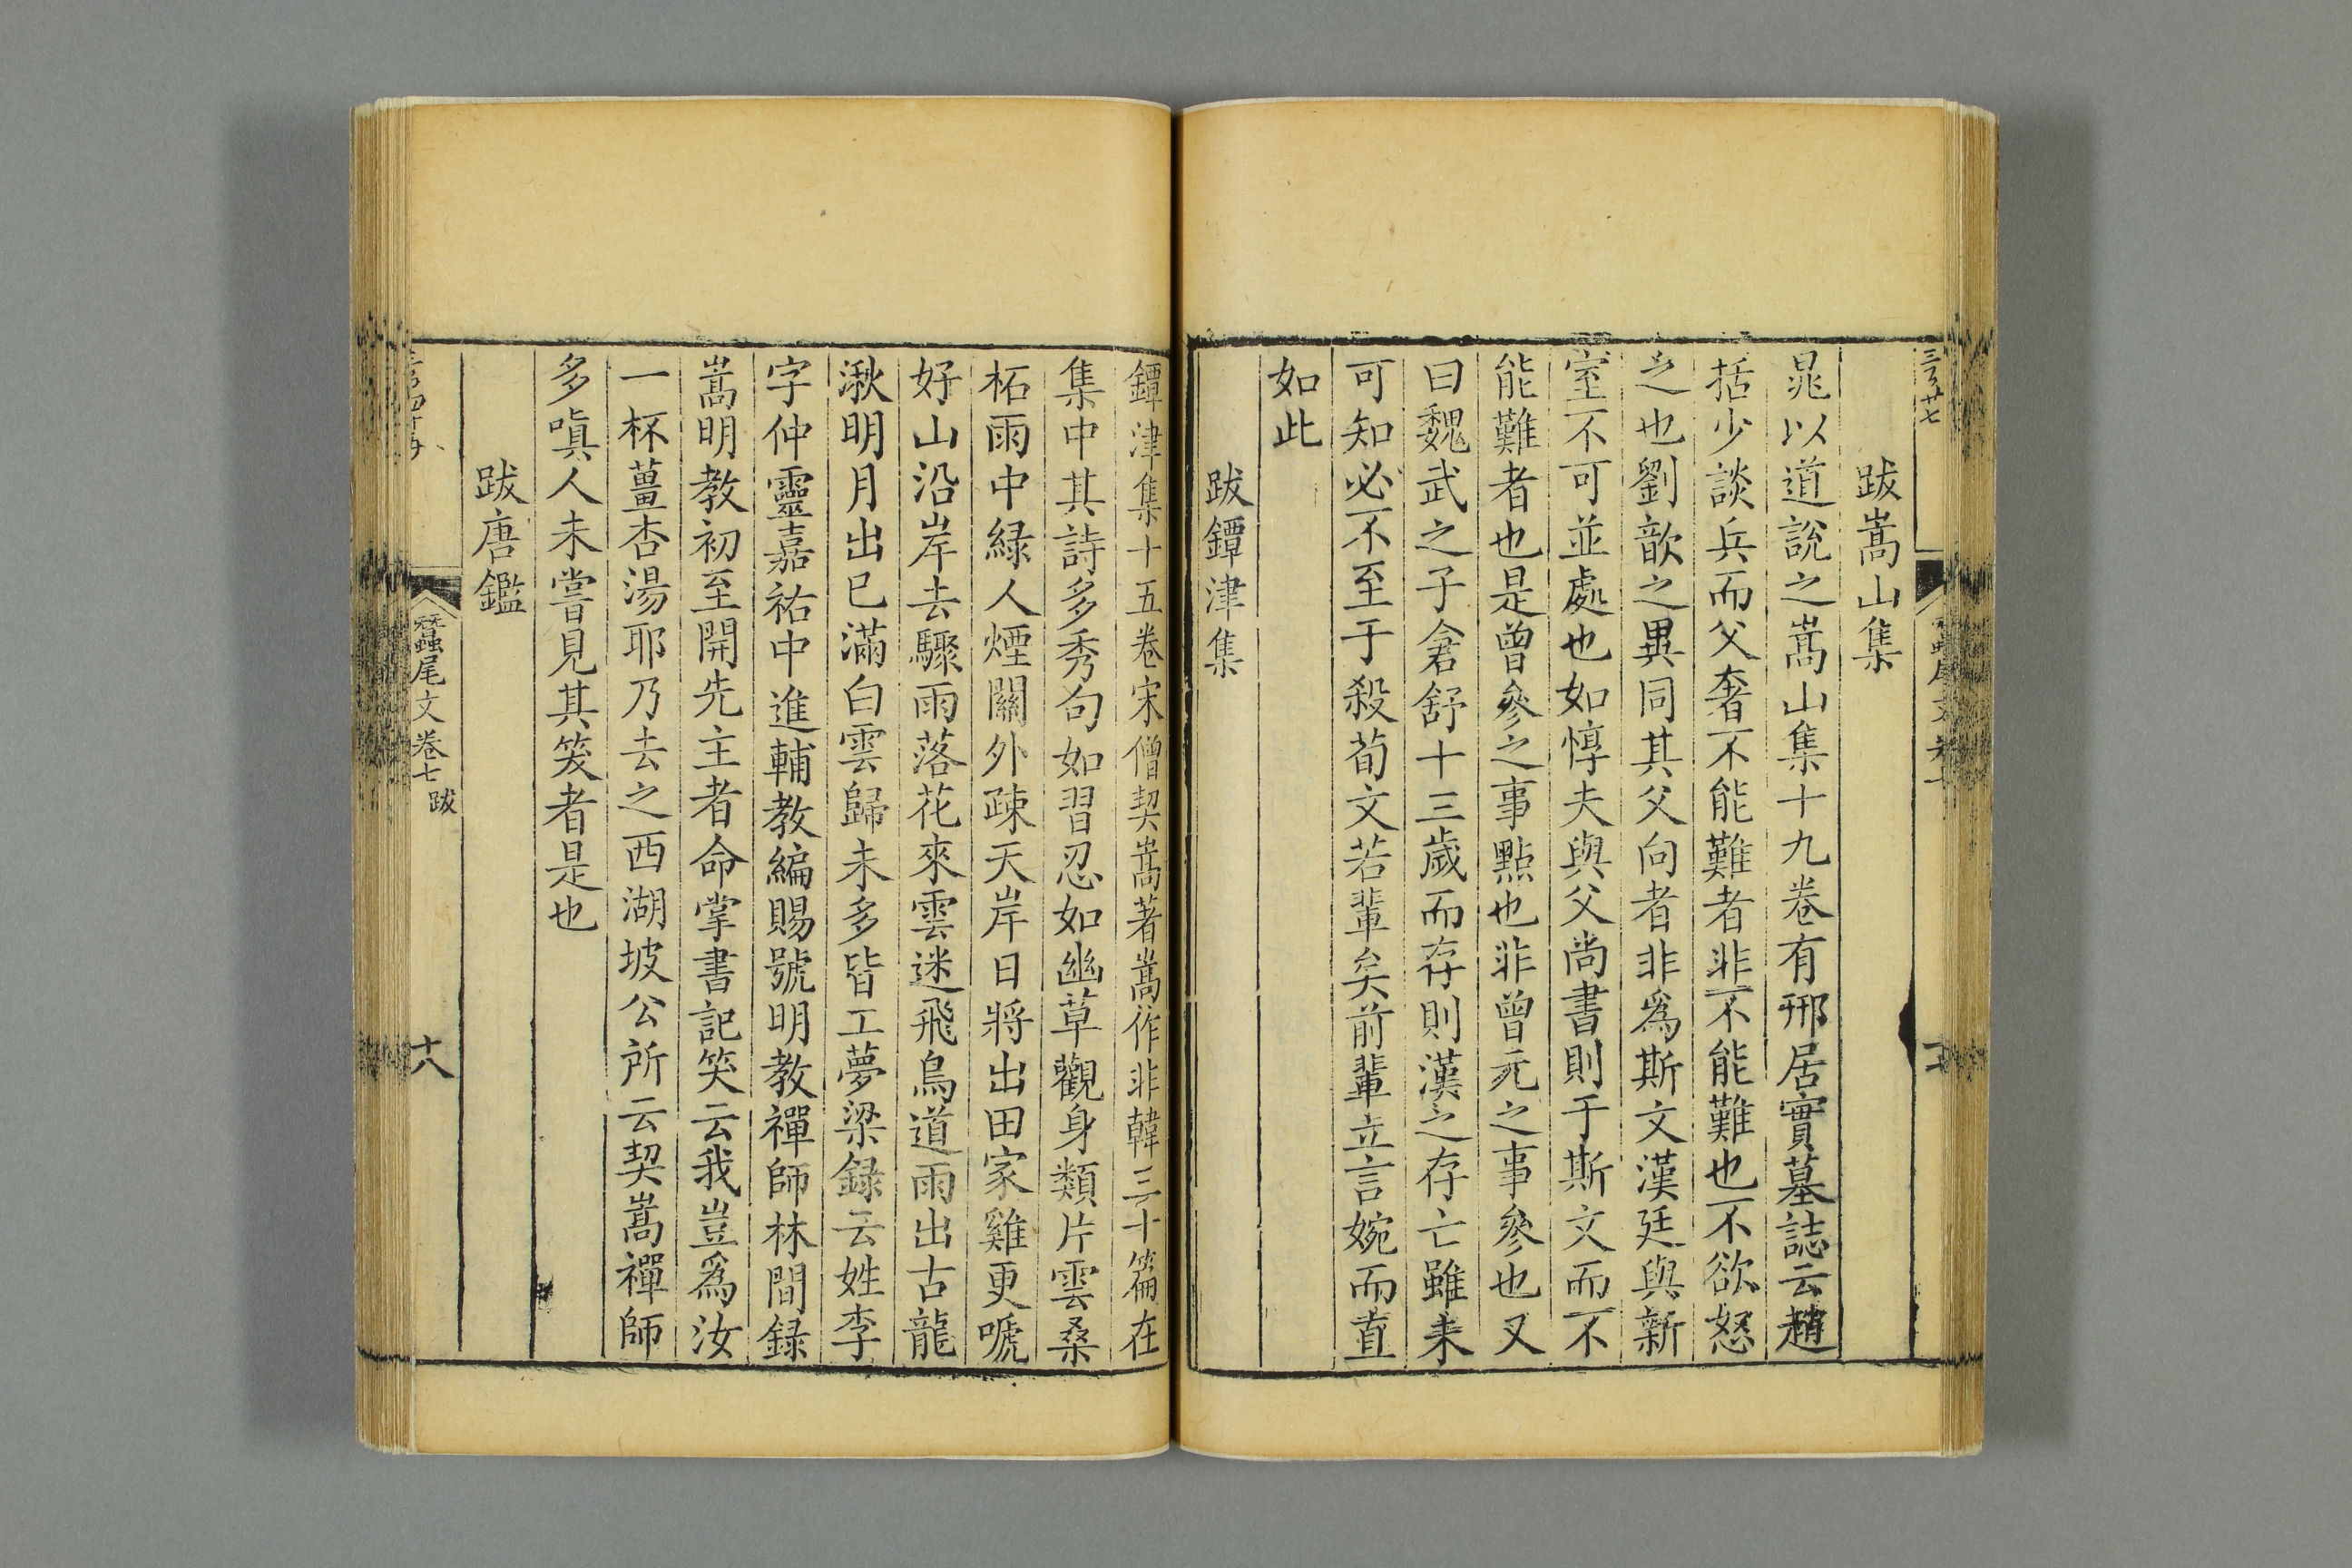 跋嵩山集
晁以道說之嵩山集十九卷有邢居實墓誌云趙
括少談兵而父奢不能難者非不能難也不欲怒
之也劉歆之異同其父向者非爲斯文漢廷與新
室不可並處也如惇夫與父尚書則于斯文而不
能難者也是曾參之事點也非曾元之事參也又
曰魏武之子倉舒十三歲而存則漢之存亡雖未
可知必不至于殺荀文若輩矣前輩立言婉而直
如此
跋鐔津集
鐔津集十五卷宋僧契嵩著嵩作非韓三十篇在
集中其詩多秀句如習忍如幽草觀身類片雲桑
柘雨中綠人煙關外疎天岸日將出田家雞更嗁
好山沿岸去驟雨落花來雲迷飛鳥道雨出古龍
湫明月出已滿白雲歸未多皆工夢梁録云姓李
字仲靈嘉祐中進輔教編賜號明教禪師林間録
嵩明教初至開先主者命掌書記笑云我豈爲汝
一杯薑杏湯耶乃去之西湖坡公所云契嵩禪師
多嗔人未嘗見其笑者是也
跋唐鑑
蠶尾文卷七 跋
十八